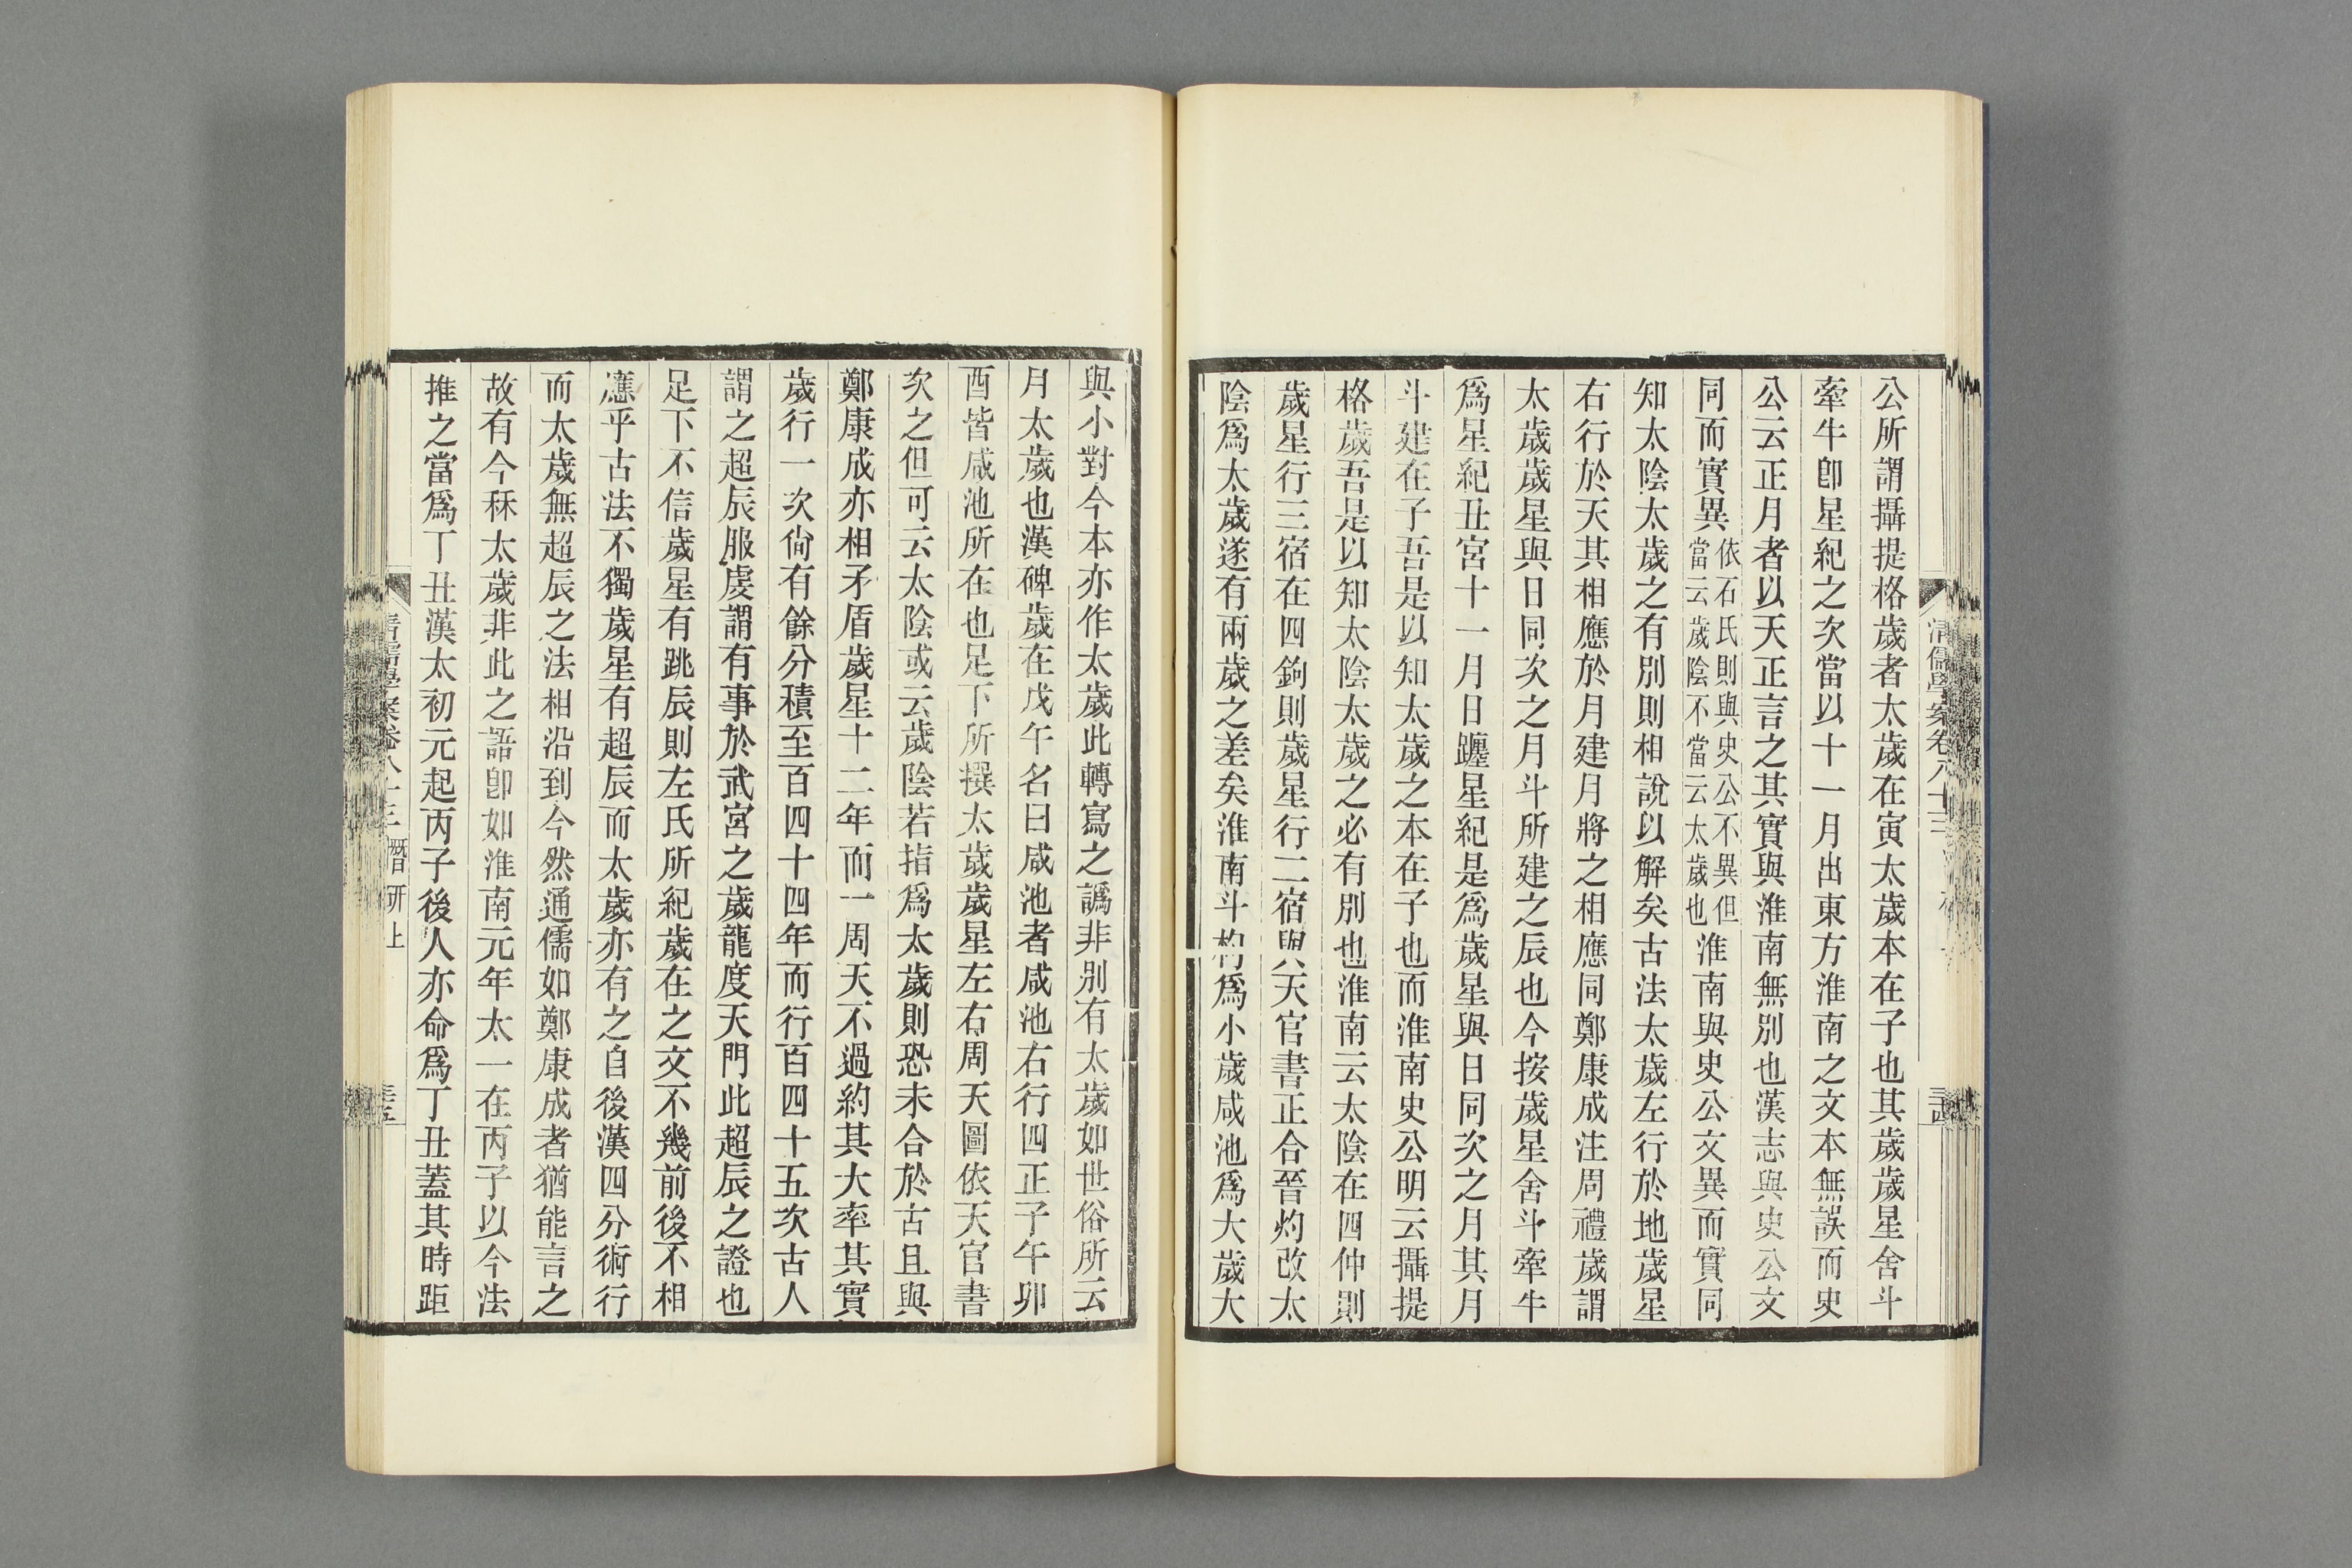 公所謂攝提格歲者太歲在寅太歲本在子也其歲歲星舍斗
牽牛卽星紀之次當以十一月出東方淮南之文本無誤而史
公云正月者以天正言之其實與淮南無別也漢志與史公文
同而實異依石氏則與史公不異但當云歲陰不當云太歲也淮南與史公文異而實同
知太陰太歲之有別則相說以解矣古法太歲左行於地歲星
右行於天其相應於月建月將之相應同鄭康成注周禮歲謂
太歲歲星與日同次之月斗所建之辰也今按歲星舍斗牽牛
爲星紀丑宮十一月日躔星紀是爲歲星與日同次之月其月
斗建在子吾是以知太歲之本在子也而淮南史公明云攝提
格歲吾是以知太陰太歲之必有別也淮南云太陰在四仲則
歲星行三宿在四鉤則歲星行二宿與天官書正合晉灼改太
陰爲太歲遂有兩歲之差矣淮南斗杓爲小歲咸池爲大歲大
清儒學案卷八十三
與小對今本亦作太歲此轉寫之譌非別有太歲如世俗所云
月太歲也漢碑歲在戊午名曰咸池者咸池右行四正子午卯
酉皆咸池所在也足下所撰太歲歲星左右周天圖依天官書
次之但可云太陰或云歲陰若指爲太歲則恐未合於古且與
鄭康成亦相矛盾歲星十二年而一周天不過約其大率其實
歲行一次尙有餘分積至百四十四年而行百四十五次古人
謂之超辰服虔謂有事於武宮之歲龍度天門此超辰之證也
足下不信歲星有跳辰則左氏所紀歲在之文不幾前後不相
應乎古法不獨歲星有超辰而太歲亦有之自後漢四分術行
而太歲無超辰之法相沿到今然通儒如鄭康成者猶能言之
故有今秝太歲非此之語卽如淮南元年太一在丙子以今法
推之當爲丁丑漢太初元起丙子後人亦命爲丁丑蓋其時距
清儒學案卷八十三 潛研上